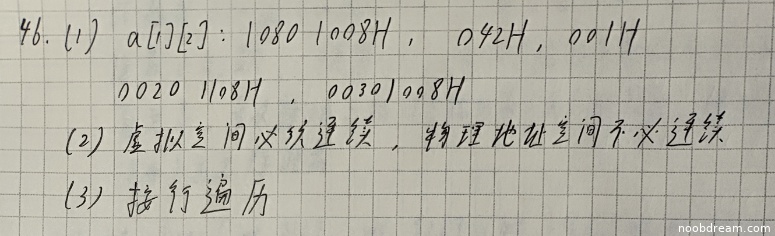 46.(1) a[1][2]: 1080 1008H, 042H, 001H
0020 1108H, 00301008H
(2) 虚拟空间必须连续, 物理地址空间不必连续
(3) 按行遍历
noobdream.com